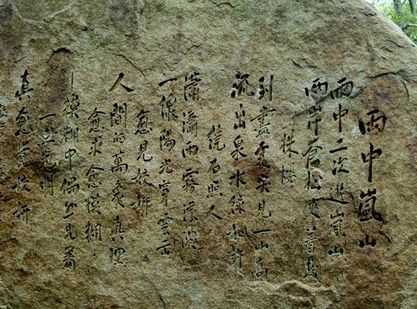 雨中嵐山
雨中二次遊嵐山
兩岸蒼松夾着幾
株櫻
到盡處突見一山高
流出泉水綠如許
繞石照人
瀟瀟雨霧濛濃
一線陽光穿雲出
愈見姣妍
人間的萬象真理
愈求愈模糊
模糊中偶然見着
一點光明
真愈覺姣妍